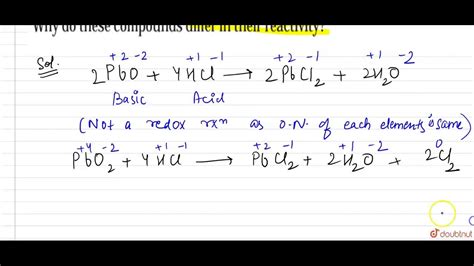 Why do these compounds differ in their reactivity?
Sol.
+2 -2 +1 -1 +2 -1 +1 -2
2PbO + 4HCl → 2PbCl2 + 2H2O
Basic Acid
(Not a redox rxn as O.N. of each elements is same)
+4 -2 +1 -1 +2 -1 +1 -2 0
PbO2 + 4HCl → PbCl2 + 2H2O + 2Cl2
doubtnut